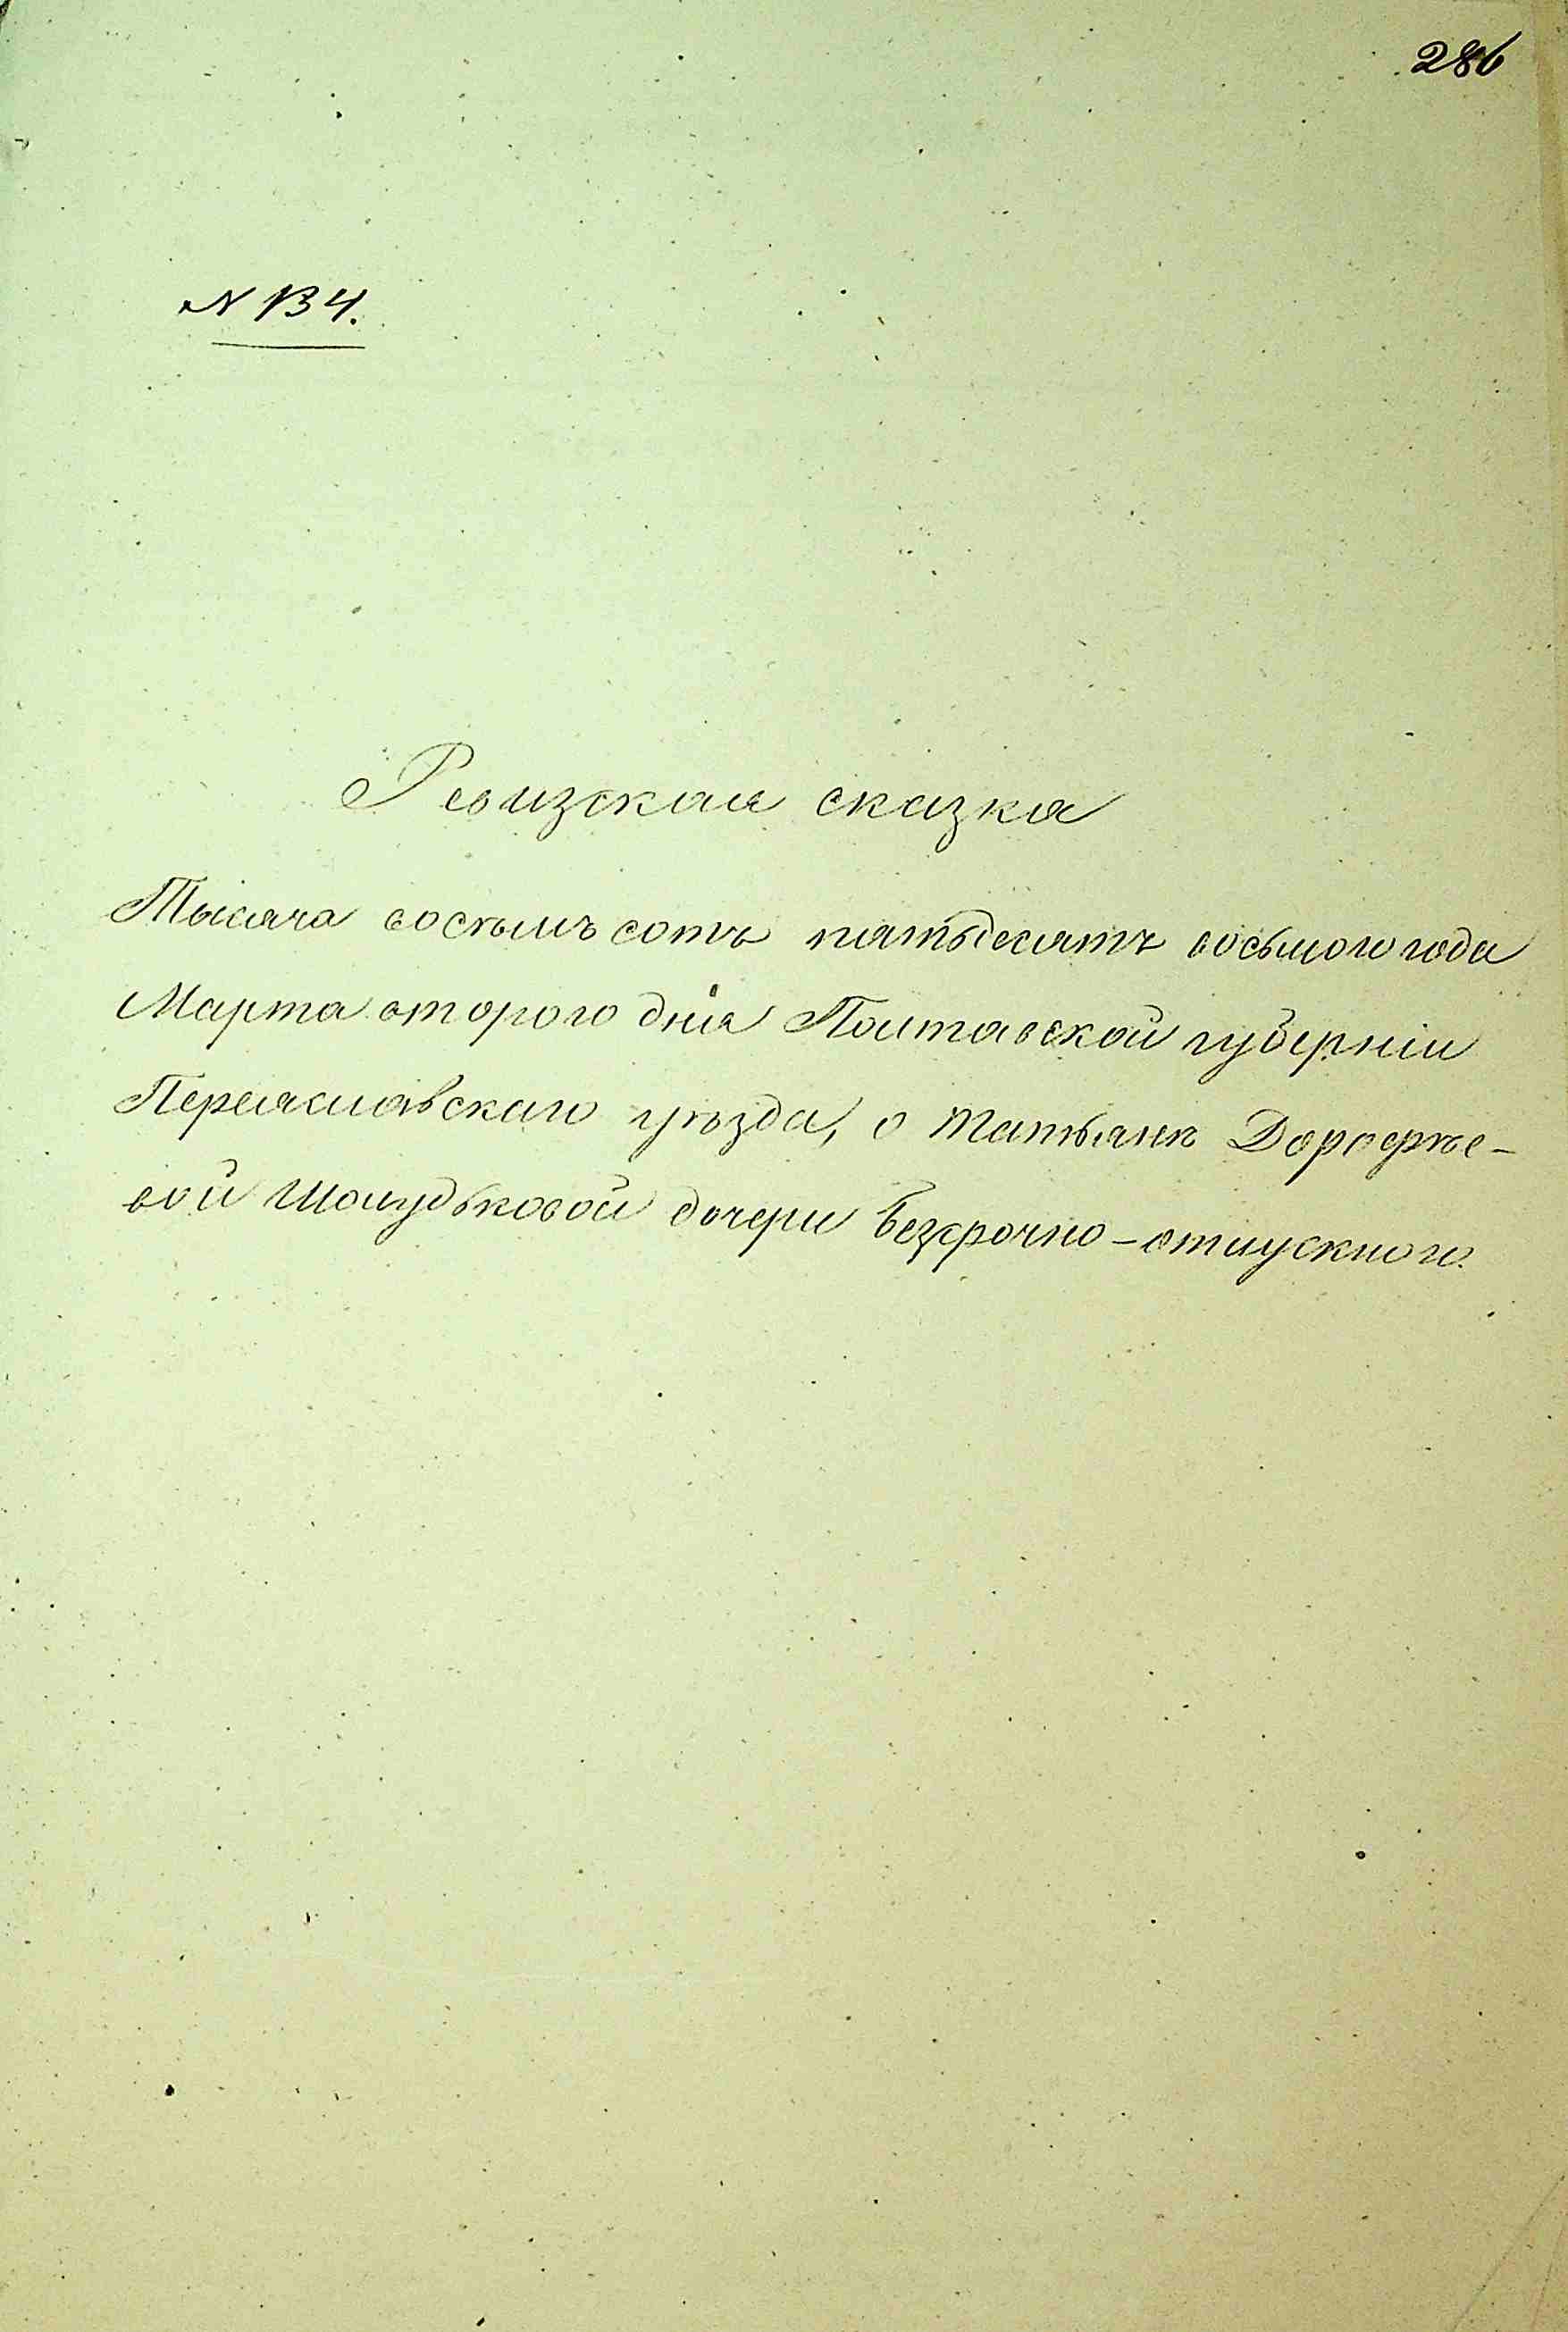 286
№ 134.
Ревизская сказка
Тысяча восемь сотъ пятьдесятъ восьмого года
Марта второго дня Полтавской губерніи
Переяславскаго уѣзда, о Татьянѣ Дорофѣе-
вой Шолудьковой дочери безсрочно-отпускного.